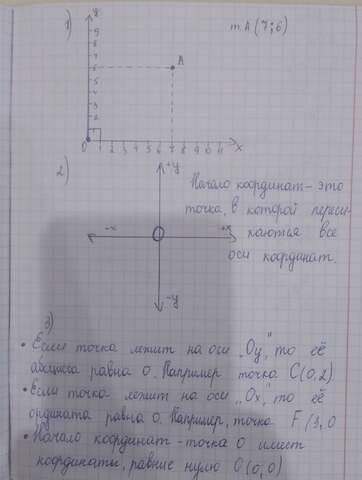 1)
y
т. А (7; 6)
9
8
7
6
5
4
3
2
A
0 1 2 3 4 5 6 7 8 9 10 11 x
2)
+y
Начало координат - это
точка, в которой пересе-
-x
+x
каются все
оси координат.
-y
3)
• Если точка лежит на оси „Oy", то её
абсцисса равна 0. Например точка C(0,2)
• Если точка лежит на оси „Ox", то её
ордината равна 0. Например, точка F(3,0
• Начало координат - точка 0 имеет
координаты, равные нулю O(0,0)